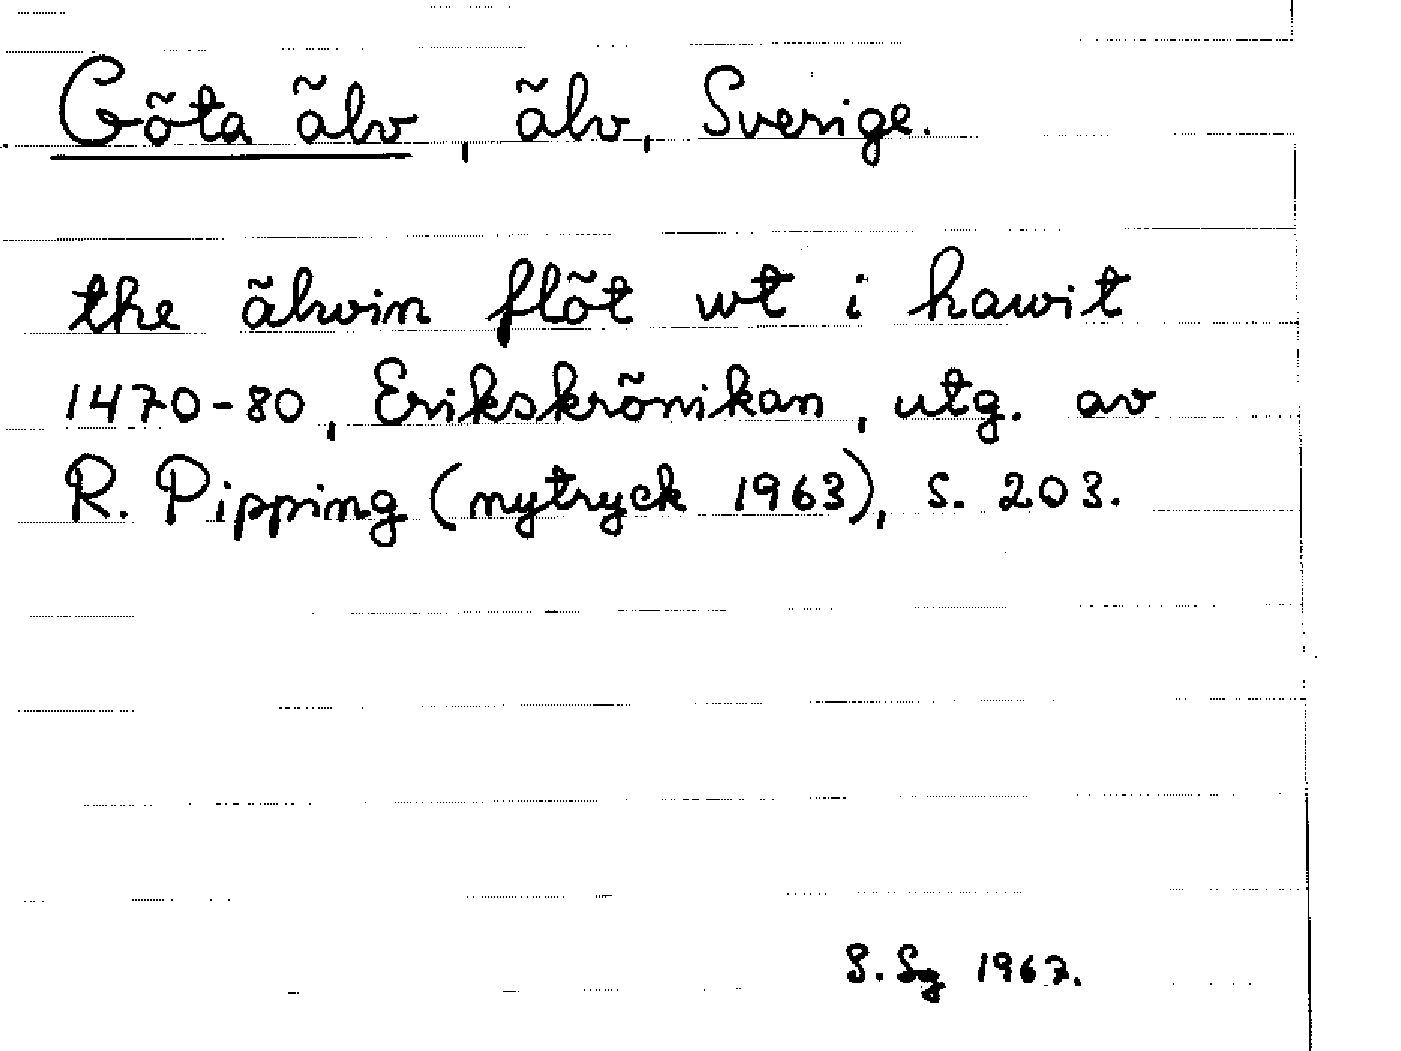 Göta älv, älv, Sverige.
the älwin flöt wt i hawit
1470-80, Erikskrönikan, utg. av
R. Pipping (nytryck 1963), s. 203.
S. Sg 1967.